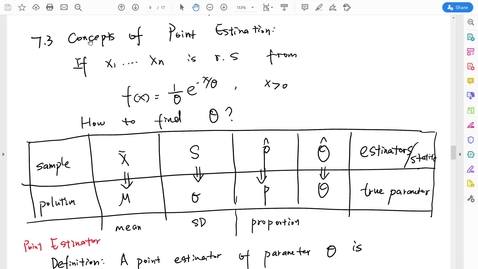 7.3 Concepts of Point Estimation:
If X₁ .... Xn is r.s from
f(x) = 1/θ e^(-x/θ) , x>0
How to find θ ?
sample X̄ S p̂ θ̂ estimators/statistic
polution μ σ p θ true paramter
mean SD proportion
Point Estimator
Definition: A point estimator of parameter θ is